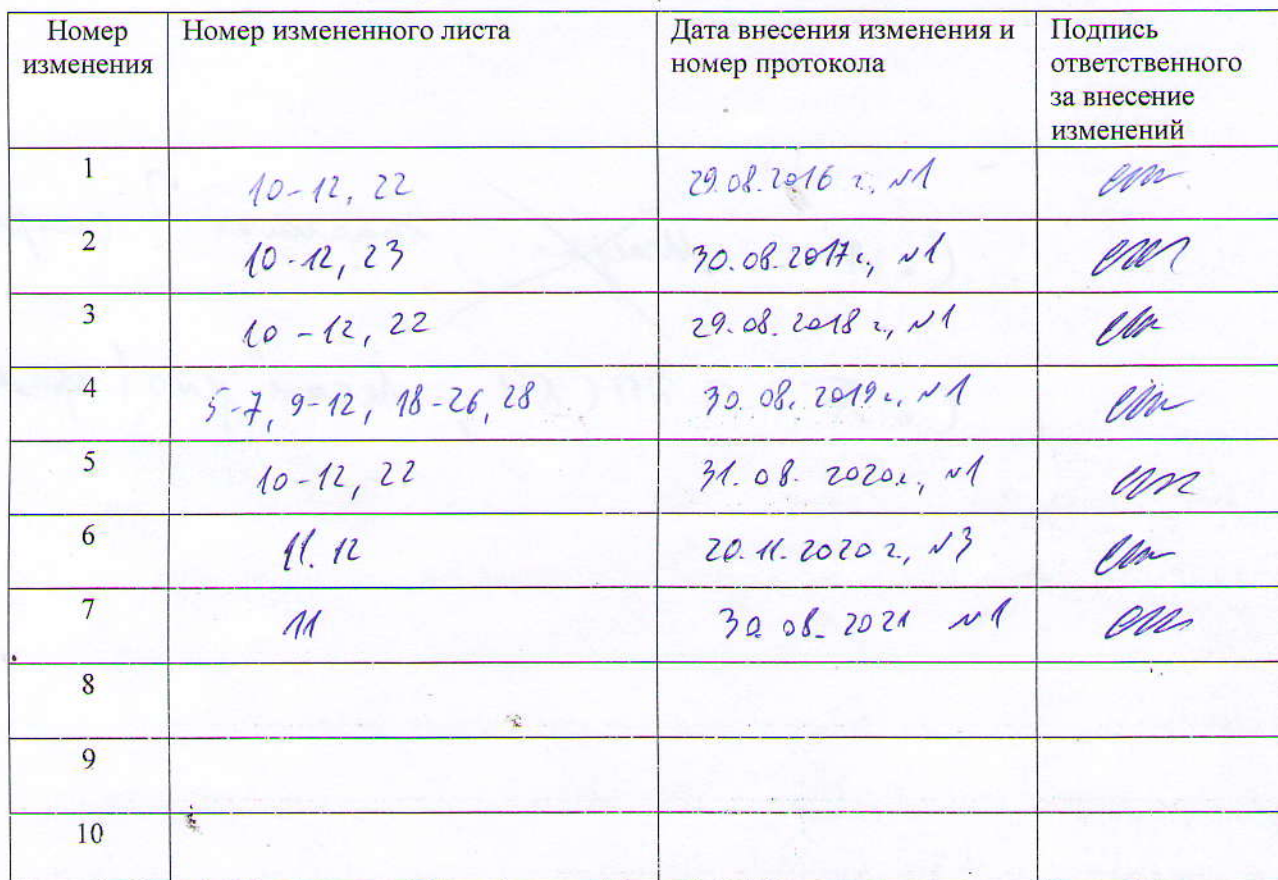 Номер изменения | Номер измененного листа | Дата внесения изменения и номер протокола | Подпись ответственного за внесение изменений
1 | 10-12, 22 | 29.08.2016 г., №1
2 | 10-12, 23 | 30.08.2017г., №1
3 | 10-12, 22 | 29.08.2018 г., №1
4 | 5-7, 9-12, 18-26, 28 | 30.08.2019г., №1
5 | 10-12, 22 | 31.08.2020г., №1
6 | 11.12 | 20.11.2020 г., №3
7 | 11 | 30.08.2021 №1
8
9
10